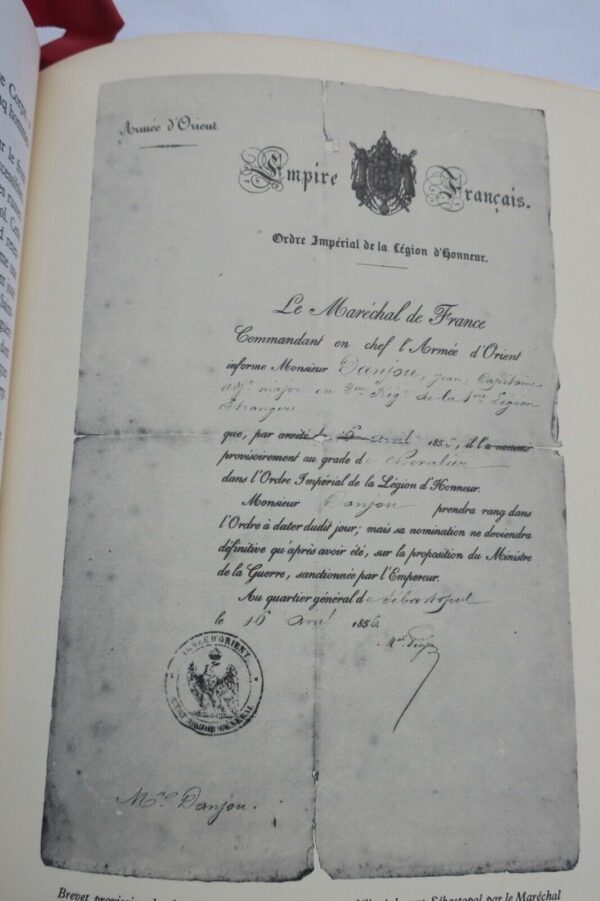 re Corps,
Armée d'Orient
Empire Français.
Ordre Impérial de la Légion d'Honneur.
Le Maréchal de France
Commandant en chef l'Armée d'Orient
informe Monsieur Danjou, Jean, Capitaine
adjt major au 2me Régt de la 1ere Légion
Étrangère
que, par arrêté du 16 avril 1856, il l'a nommé
provisoirement au grade de Chevalier
dans l'Ordre Impérial de la Légion d'Honneur.
Monsieur Danjou prendra rang dans
l'Ordre à dater dudit jour; mais sa nomination ne deviendra
définitive qu'après avoir été, sur la proposition du Ministre
de la Guerre, sanctionnée par l'Empereur.
Au quartier général de Sébastopol
le 16 avril 1856.
ARMÉE D'ORIENT
GÉNÉRAL
Mr Danjou.
Brevet Sébastopol par le Maréchal